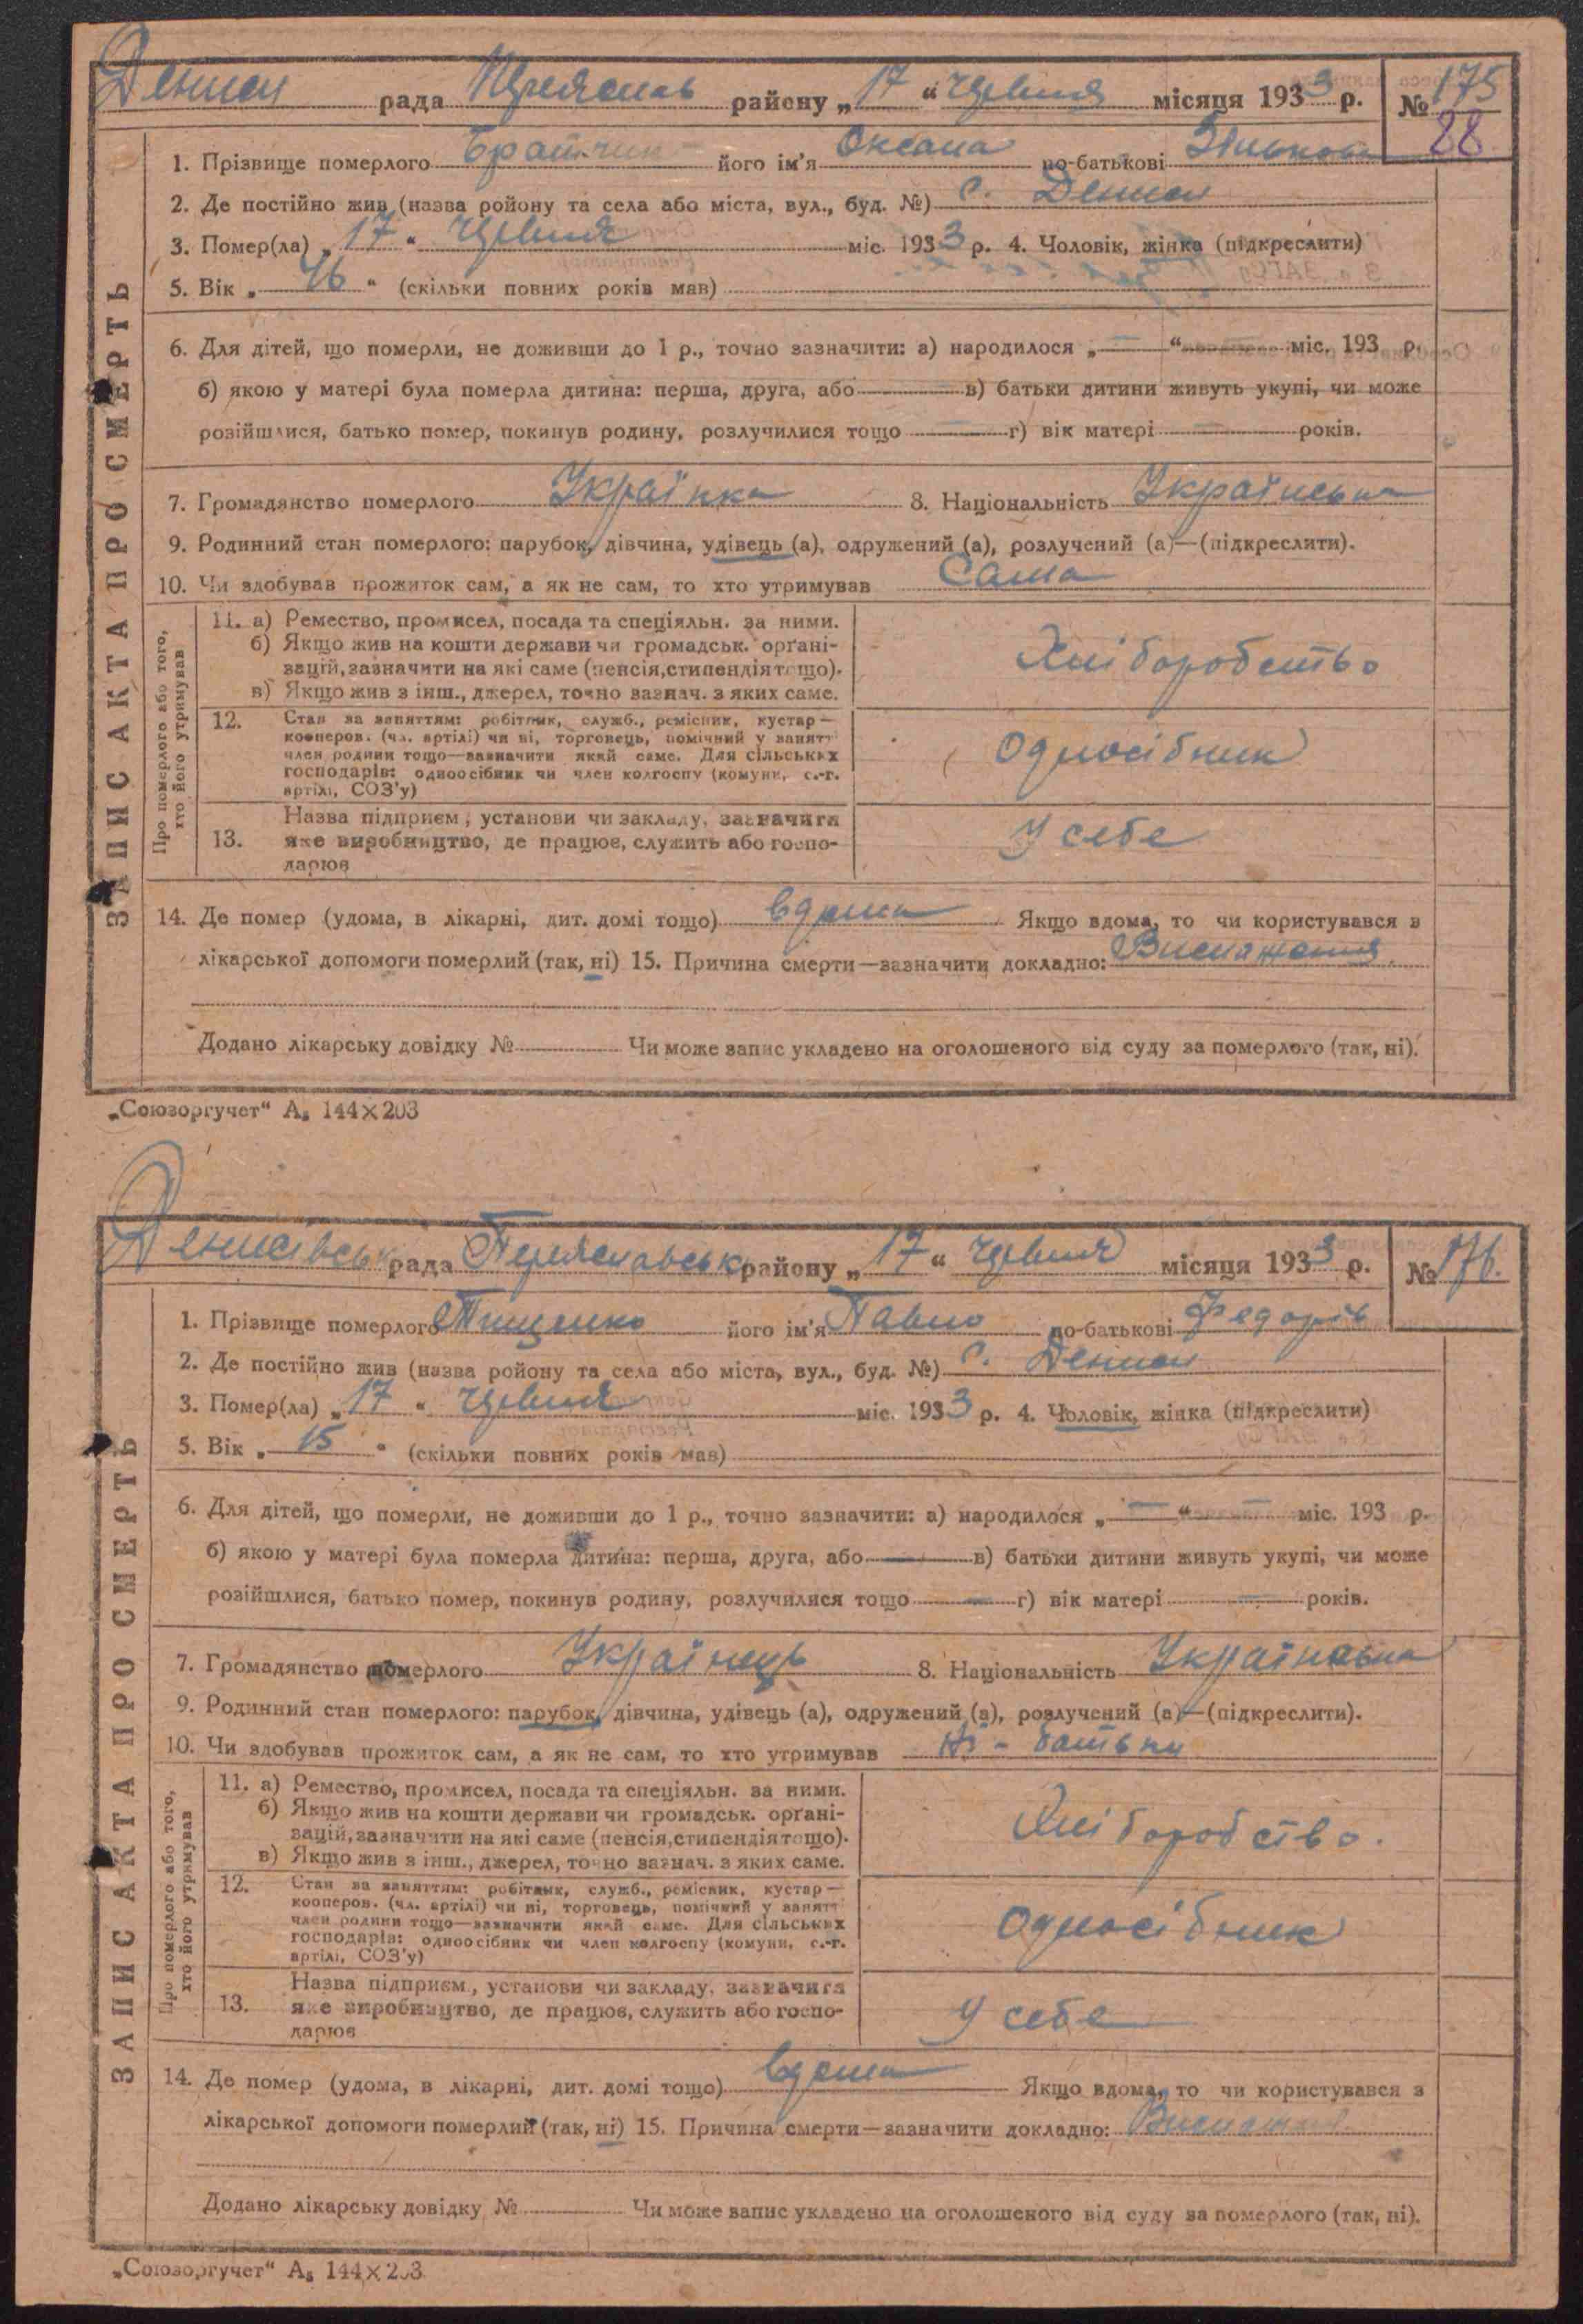 Дениси рада Переяслав району „17“ червня місяця 1933 р. № 175
88
1. Прізвище померлого Братчик його ім'я Оксана по-батькові
2. Де постійно жив (назва ройону та села або міста, вул., буд. №) с. Дениси
3. Помер(ла) „17“ червня міс. 1933 р. 4. Чоловік, жінка (підкреслити)
5. Вік „46“ (скільки повних років мав)
6. Для дітей, що померли, не доживши до 1 р., точно зазначити: а) народилося „—“ міс. 193 р.
б) якою у матері була померла дитина: перша, друга, або — в) батьки дитини живуть укупі, чи може
розійшлися, батько помер, покинув родину, розлучилися тощо — г) вік матері — років.
7. Громадянство померлого Українка 8. Національність Українська
9. Родинний стан померлого: парубок, дівчина, удівець (а), одружений (а), розлучений (а)—(підкреслити).
10. Чи здобував прожиток сам, а як не сам, то хто утримував Сама
ЗАПИС АКТА ПРО СМЕРТЬ
Про померлого або того,
хто його утримував
11. а) Ремество, промисел, посада та спеціяльн. за ними.
б) Якщо жив на кошти держави чи громадськ. орґані-
зацій, зазначити на які саме (пенсія, стипендія тощо).
в) Якщо жив з інш., джерел, точно зазнач. з яких саме.
Хліборобство
12. Стан за заняттям: робітник, служб., ремісник, кустар—
кооперов. (чл. артілі) чи ні, торговець, помічний у занятт
член родини тощо—зазначити який саме. Для сільських
господарів: одноосібник чи член колгоспу (комуни, с.-г.
артілі, СОЗ'у)
Одноосібник
13. Назва підприєм, установи чи закладу, зазначити
яке виробництво, де працює, служить або госпо-
дарює
У себе
14. Де помер (удома, в лікарні, дит. домі тощо) вдома Якщо вдома, то чи користувався з
лікарської допомоги померлий (так, ні) 15. Причина смерти—зазначити докладно: Виснаження
Додано лікарську довідку № Чи може запис укладено на оголошеного від суду за померлого (так, ні).
„Союзоргучет“ А₅ 144×203
Денисівськ рада Переяславськ району „17“ червня місяця 1933 р. № 176.
1. Прізвище померлого Тищенко його ім'я Павло по-батькові Федорів
2. Де постійно жив (назва ройону та села або міста, вул., буд. №) с. Дениси
3. Помер(ла) „17“ червня міс. 1933 р. 4. Чоловік, жінка (підкреслити)
5. Вік „15“ (скільки повних років мав)
6. Для дітей, що померли, не доживши до 1 р., точно зазначити: а) народилося „—“ — міс. 193 р.
б) якою у матері була померла дитина: перша, друга, або — в) батьки дитини живуть укупі, чи може
розійшлися, батько помер, покинув родину, розлучилися тощо — г) вік матері — років.
7. Громадянство померлого Українець 8. Національність Українська
9. Родинний стан померлого: парубок, дівчина, удівець (а), одружений (а), розлучений (а)—(підкреслити).
10. Чи здобував прожиток сам, а як не сам, то хто утримував Ні - батьки
ЗАПИС АКТА ПРО СМЕРТЬ
Про померлого або того,
хто його утримував
11. а) Ремество, промисел, посада та спеціяльн. за ними.
б) Якщо жив на кошти держави чи громадськ. орґані-
зацій, зазначити на які саме (пенсія, стипендія тощо).
в) Якщо жив з інш., джерел, точно зазнач. з яких саме.
Хліборобство.
12. Стан за заняттям: робітник, служб., ремісник, кустар—
кооперов. (чл. артілі) чи ні, торговець, помічний у занятт
член родини тощо—зазначити який саме. Для сільських
господарів: одноосібник чи член колгоспу (комуни, с.-г.
артілі, СОЗ'у)
Одноосібник
13. Назва підприєм, установи чи закладу, зазначити
яке виробництво, де працює, служить або госпо-
дарює
У себе
14. Де помер (удома, в лікарні, дит. домі тощо) вдома Якщо вдома, то чи користувався з
лікарської допомоги померлий (так, ні) 15. Причина смерти—зазначити докладно: Виснаження
Додано лікарську довідку № Чи може запис укладено на оголошеного від суду за померлого (так, ні).
„Союзоргучет“ А₅ 144×203